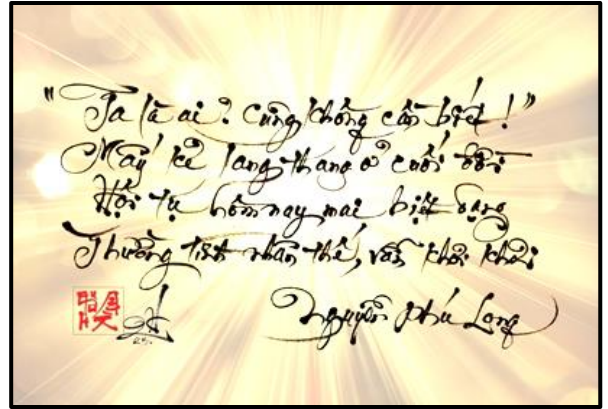 "Ta là ai? cũng không cần biết!"
Mấy kẻ lang thang ở cuối đời
Hội tụ hôm nay mai biệt dạng
Thưởng tình nhân thế, vẫn khơi khơi
Nguyễn Phú Long